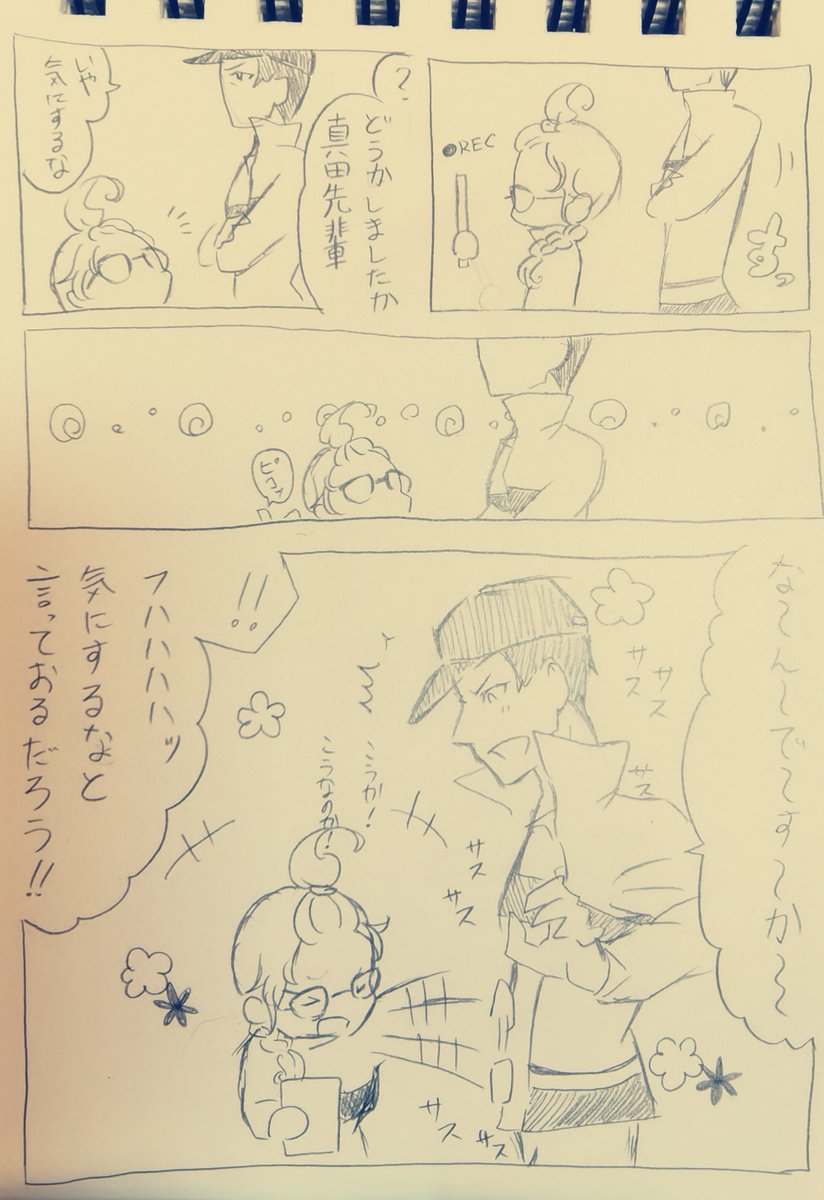 ●REC
すっ
?
どうかしましたか
真田先輩
いや
気にするな
ピコッ
な〜ん〜で〜す〜か〜
サス
サス
サス
サス
サス
!!
こうか!
こうなのか!
フハハハハッ
気にするなと
言っておるだろう!!
サス
サス
サス